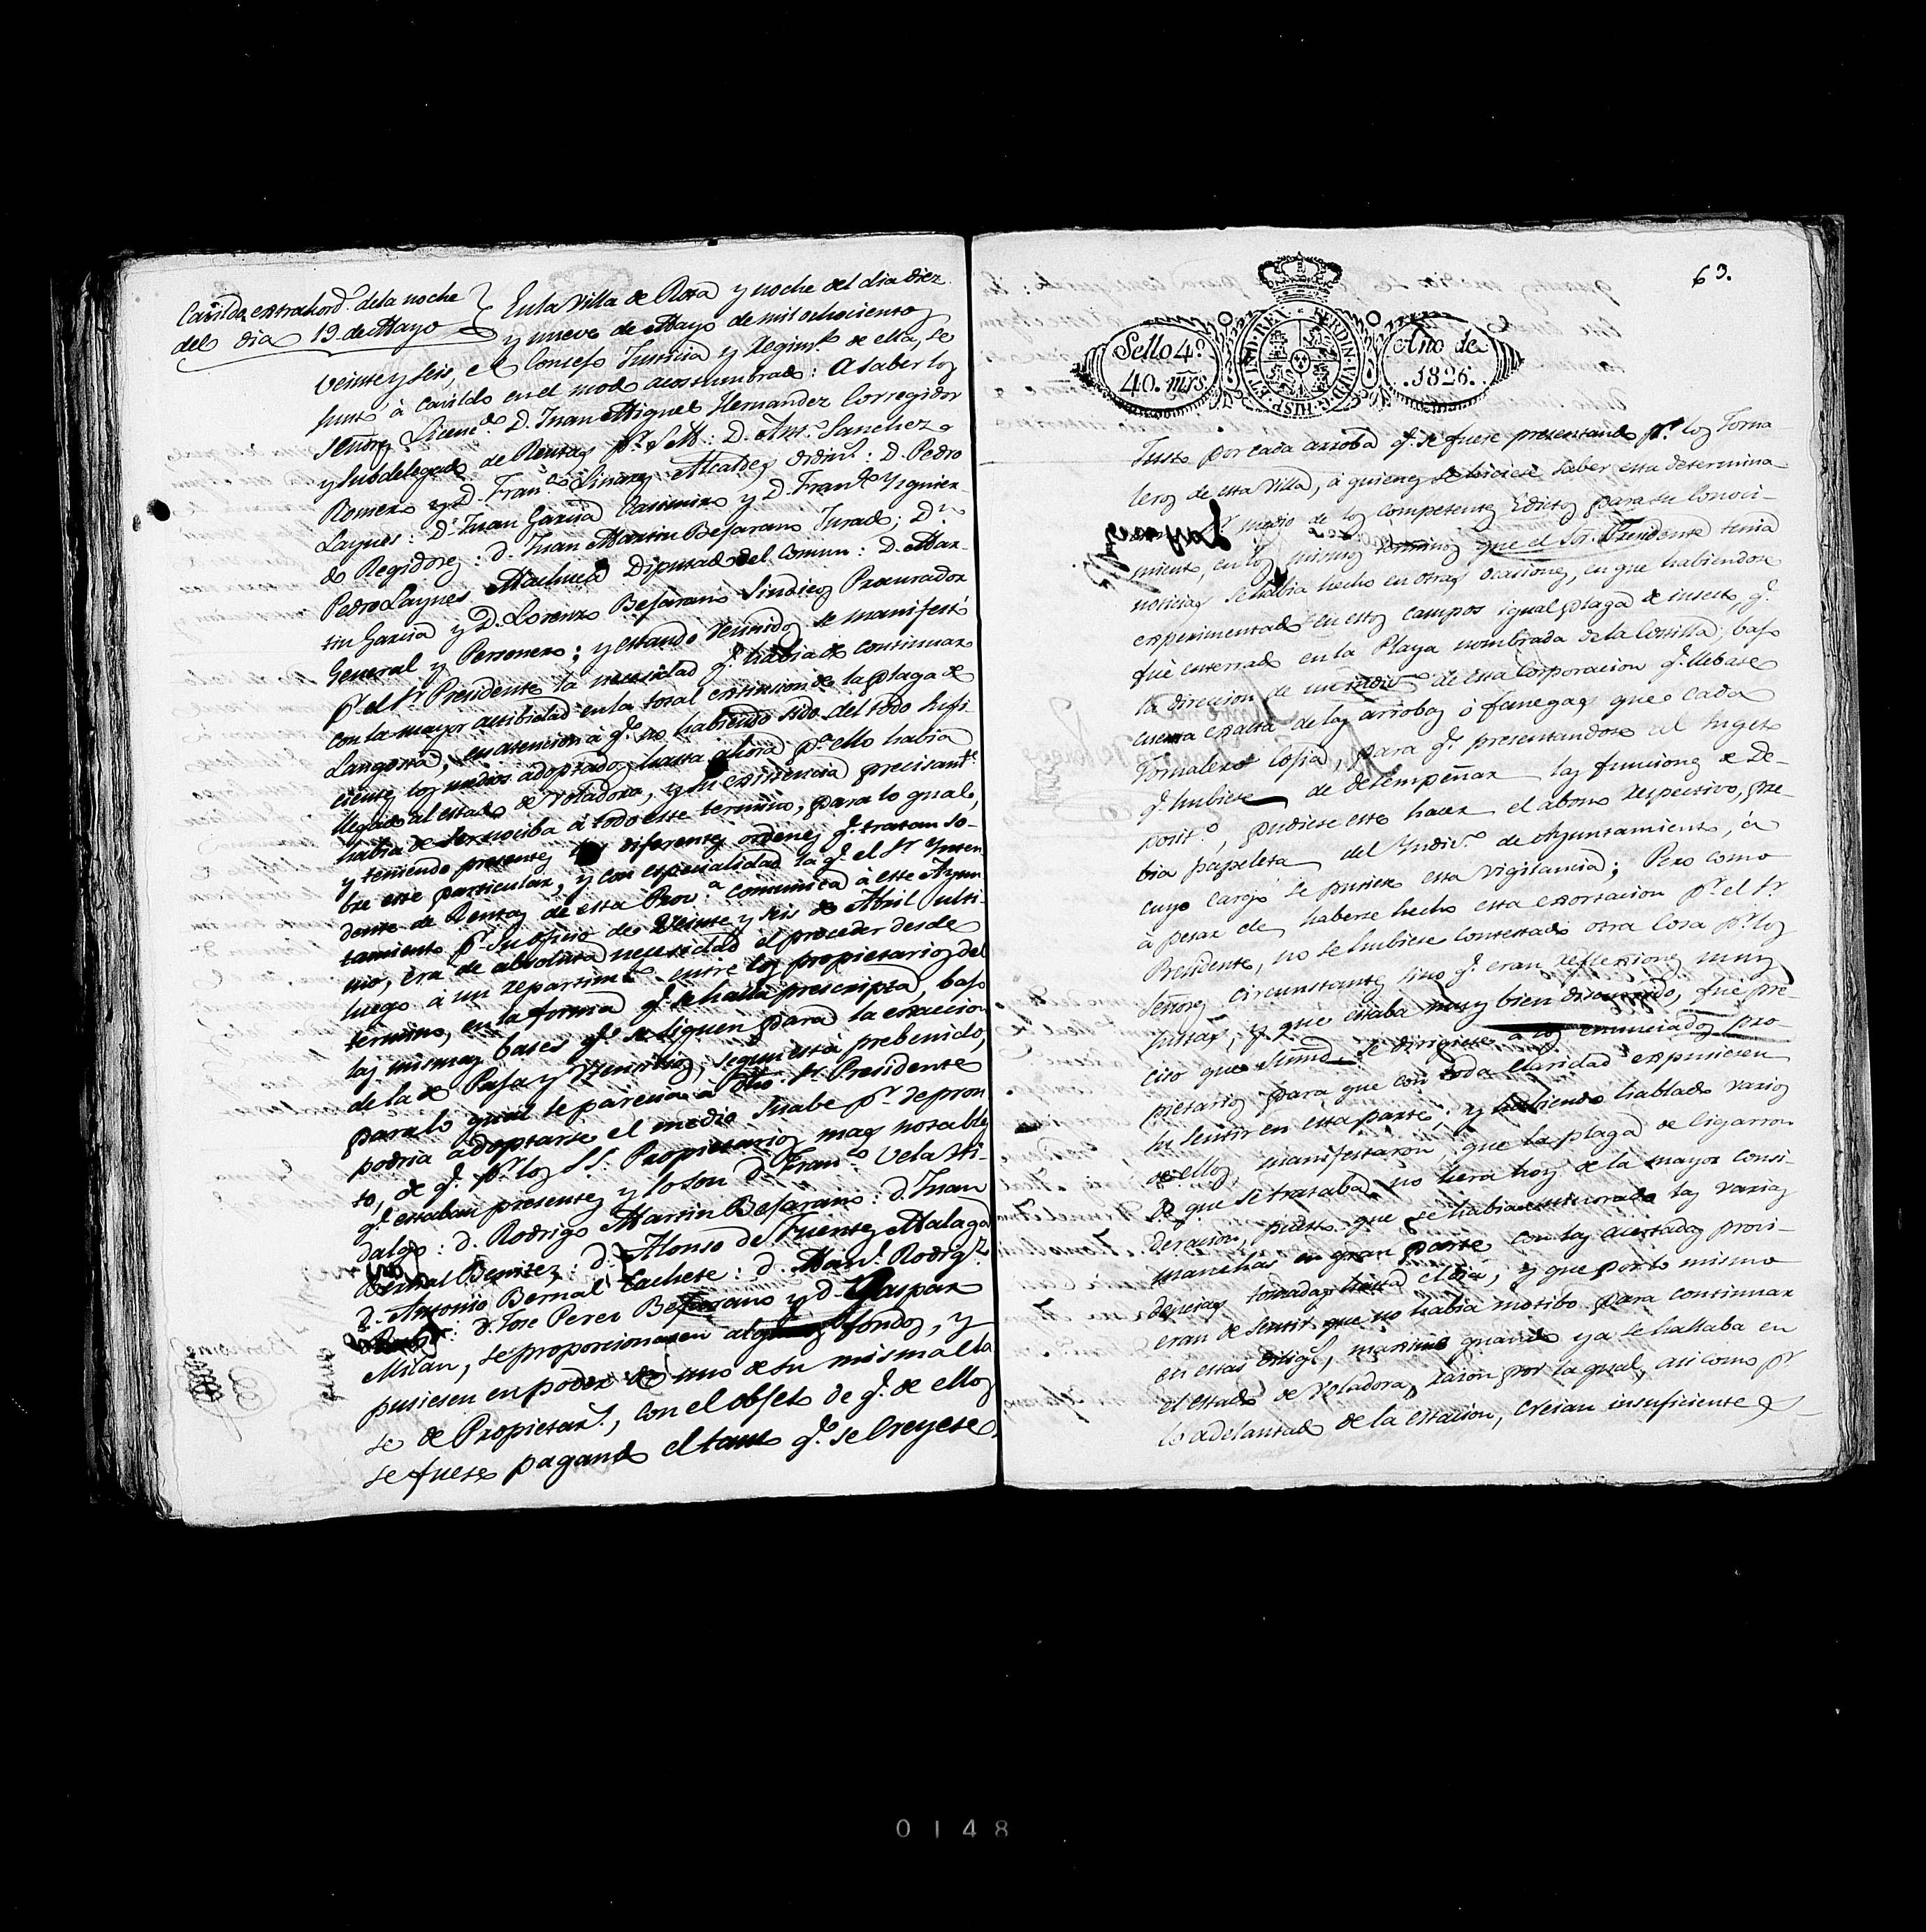 Cavildo extrahord.º de la noche
del dia 19. de Mayo
En la Villa de Rota y noche del dia diez
y nueve de Mayo de mil ochocientos
veinte y seis, el Consejo Justicia y Regim.to de esta, se
juntó à Cavildo en el modo acostumbrado: A saber los
señores Licenc.do D. Juan Miguel Hernandez Corregidor
y Subdelegado de Rentas p.r S. M.: D. Ant.º Sanchez
Romero y D. Fran.co Linares Alcaldes Ordin.s: D. Pedro
Laynes: D. Juan Garcia Casimiro y D. Fran.co Yzquier-
do Regidores: D. Juan Martin Bejarano Jurado; D.n
Pedro Laynes Machuca Diputado del Comun: D. Mar-
tin Garcia y D. Lorenzo Bejarano Sindicos Procurador
General y Personero; y estando reunidos se manifestó
p.r el S.r Presidente la necesidad q.e habia de continuar
con la mayor actibidad en la total extincion de la plaga de
Langosta, en atencion à q.e no habiendo sido del todo sufi-
cientes los medios adoptados hasta ahora p.a ello habia
llegado al estado de voladora, y su existencia precisam.te
habia de ser nociba à todo este termino, para lo qual,
y teniendo presentes las diferentes ordenes q.e tratan so-
bre este particular, y con especialidad la q.e el S.r Ynten
dente de Rentas de esta Prov.a comunica à este Ayun
tamiento p.r su oficio de Veinte y seis de Abril ulti-
mo, era de absoluta necesidad el proceder desde
luego à un repartim.to entre los propietarios del
termino, en la forma q.e se halla prescripta, bajo
las mismas bases q.e se siguen para la exaccion
de la de Paja y Utencilios, segun está prebenido,
para lo qual le parecia à dho. S.r Presidente
podria adoptarse el medio suabe p.r de pron
to, de q.e p.r los SS. Propietarios mas notables
q.e estaban presentes y lo son D. Fran.co Vela Hi-
dalgo: D. Rodrigo Martin Bejarano: D. Juan
Bernal Benitez: D. Alonso de Fuentes Malaga
D. Antonio Bernal Cachete: D. Man.l Rodrig.z
D. Jose Perez Bejarano y D. Gaspar
Milan, se proporcionasen algunos fondos, y
pusiesen en poder de uno de su misma cla
se de Propietar.s, con el objeto de q.e de ellos
se fuese pagando el tanto q.e se creyese
63.
FERDIN. VII. D. G. HISP. ET IND. REX
Sello 4.º
40. mrs
Año de
1826.
Justo por cada arroba q.e se fuese presentando p.r los Jorna
leros de esta Villa, à quienes se hiciese saber esta determina
p.r medio de los competentes Edictos para su conoci-
miento, en los mismos terminos que el Sor. Presidente tenia
noticias se habia hecho en otras ocasiones, en que habiendose
experimentado en estos campos igual plaga de insecto, q.e
fué enterrado en la Playa nombrada de la Costilla, bajo
la direccion de un indiv.º de esta Corporacion q.e llebase
cuenta exacta de las arrobas ó fanegas que cada
Jornalero cojia, para q.e presentandose al sugeto
q.e hubiese de desempeñar las funciones de De-
posit.º, pudiese este hacer el abono respectivo, pre-
bia papeleta del Yndiv.º de Ayuntamiento, à
cuyo cargo se pusiere esta vigilancia; Pero como
à pesar de haberse hecho esta exortacion p.r el S.r
Presidente, no se hubiese contestado otra cosa p.r los
Señores circunstantes sino q.e eran reflexiones muy
justas, y que estaba muy bien discurrido, fué pre-
ciso que Sumd. se dirigiese à los enunciados pro-
pietarios para que con toda claridad expusiesen
su sentir en esta parte; y habiendo hablado varios
de ellos manifestaron, que la plaga de cigarron
de que se trataba no hera hoy de la mayor consi-
deracion, puesto que se habia estinguido las varias
manchas en gran parte con las acertadas provi-
dencias tomadas hasta el dia, y que por lo mismo
eran de sentir que no habia motibo para continuar
en estas dilig.s, maxime quando ya se hallaba en
el estado de voladora, razon por la qual, asi como p.r
lo adelantado de la estacion, creian insuficientes